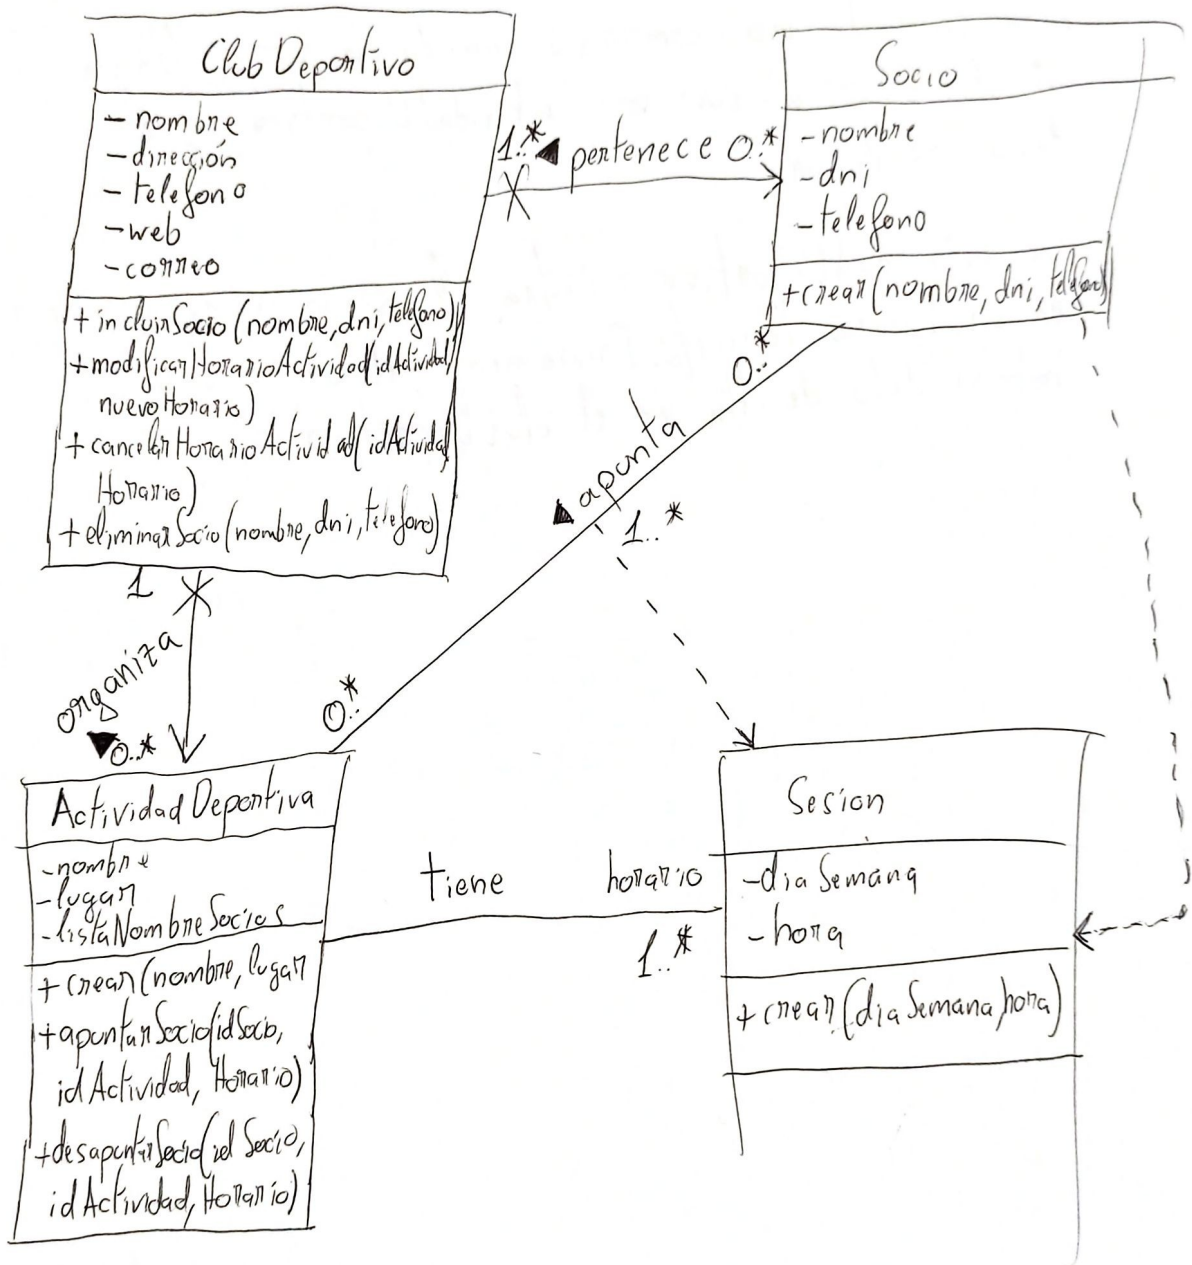 Club Deportivo
- nombre
- dirección
- telefono
- web
- correo
+ incluirSocio (nombre, dni, telefono)
+ modificarHorarioActividad(idActividad,
nuevoHorario)
+ cancelarHorarioActividad(idActividad,
Horario)
+ eliminarSocio (nombre, dni, telefono)
1..* ◀ pertenece 0..*
Socio
- nombre
- dni
- telefono
+ crear (nombre, dni, telefono)
0..*
apunta
1..*
0..*
1
organiza
0..*
Actividad Deportiva
- nombre
- lugar
- listaNombreSocios
+ crear (nombre, lugar
+ apuntarSocio(idSocio,
idActividad, Horario)
+ desapuntarSocio(idSocio,
idActividad, Horario)
tiene
horario
1..*
Sesion
- diaSemana
- hora
+ crear (diaSemana, hora)